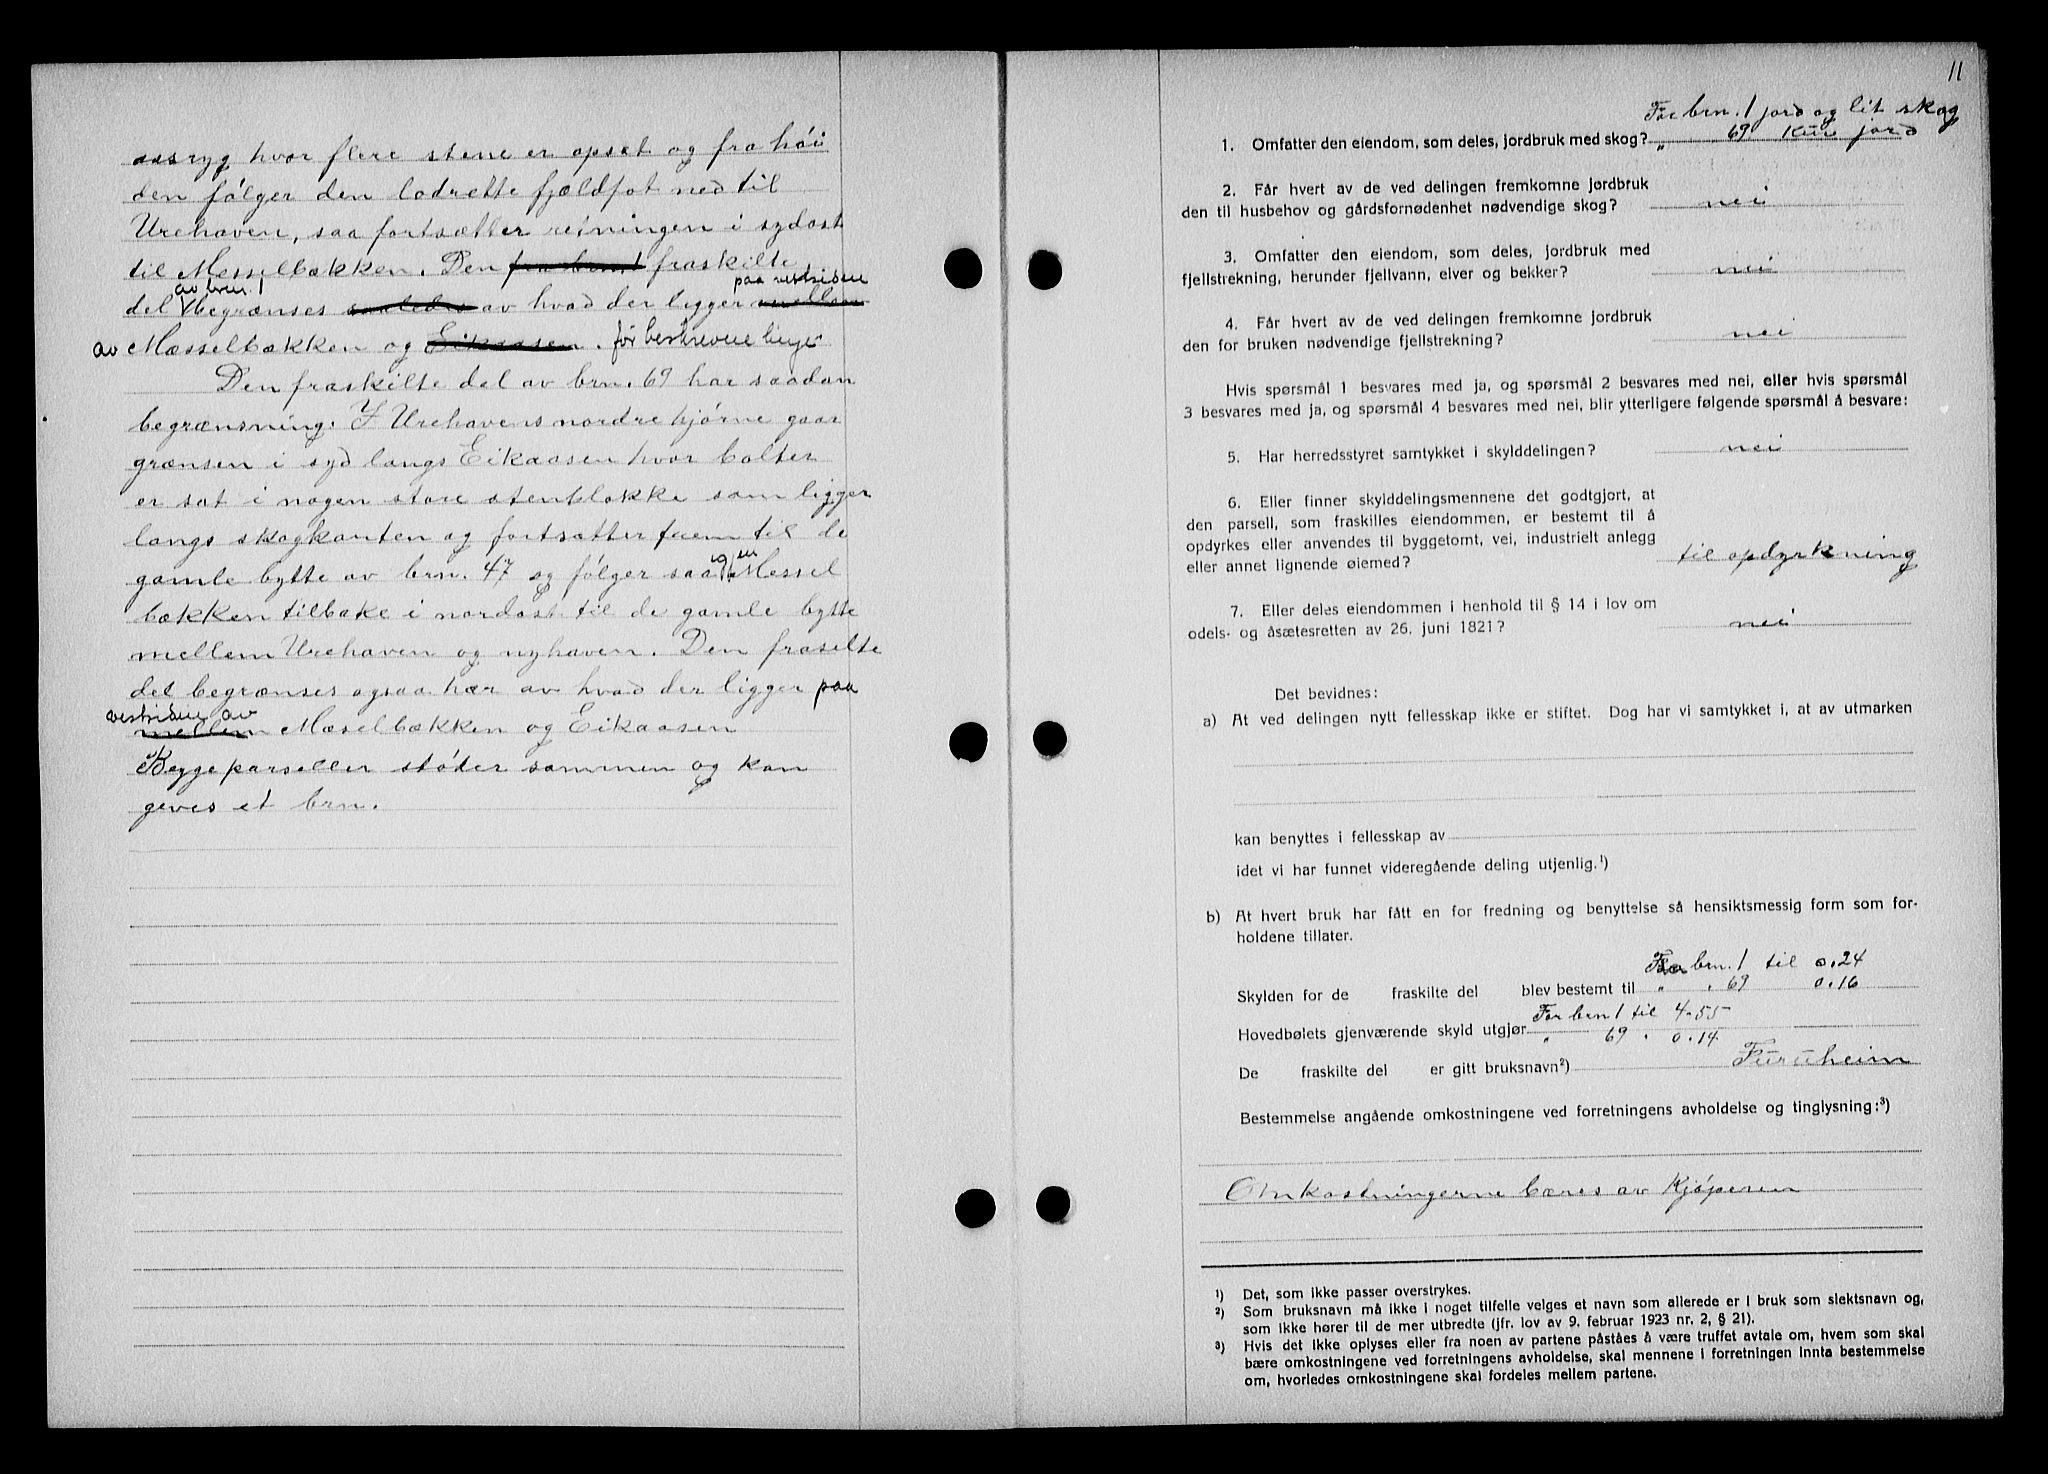 aasryg hvor flere stene er opset og fra høi
den følger den lodrette fjældfot ned til
Urehaven, saa fortsætter retningen i sydost
til Messelbækken. Den fraskilte
av brn. 1 paa vestsiden
del begrænses av hvad der ligger
av Mæsselbækken og før beskrevne linje
Den fraskilte del av brn. 69 har saadan
begrænsning: I Urehavens nordre hjørne gaar
grænsen i syd langs Eikaasen hvor bolter
er sat i nogen store stenblokke som ligger
langs skogkanten og fortsætter frem til de
gamle bytte av brn. 47 og følger saa Messel
bækken tilbake i nordost til de gamle bytte
mellem Urehaven og nyhaven. Den fraselte
del begrænses ogsaa her av hvad der ligger paa
vestsiden av
mellem Mæselbækken og Eikaasen
Begge parseller støder sammen og kan
geves et brn.
11
For brn. 1 jord og lit skog
1. Omfatter den eiendom, som deles, jordbruk med skog? „ 69 kun jord
2. Får hvert av de ved delingen fremkomne jordbruk
den til husbehov og gårdsfornødenhet nødvendige skog? nei
3. Omfatter den eiendom, som deles, jordbruk med
fjellstrekning, herunder fjellvann, elver og bekker? nei
4. Får hvert av de ved delingen fremkomne jordbruk
den for bruken nødvendige fjellstrekning? nei
Hvis spørsmål 1 besvares med ja, og spørsmål 2 besvares med nei, eller hvis spørsmål
3 besvares med ja, og spørsmål 4 besvares med nei, blir ytterligere følgende spørsmål å besvare:
5. Har herredsstyret samtykket i skylddelingen? nei
6. Eller finner skylddelingsmennene det godtgjort, at
den parsell, som fraskilles eiendommen, er bestemt til å
opdyrkes eller anvendes til byggetomt, vei, industrielt anlegg
eller annet lignende øiemed? til opdyrkning
7. Eller deles eiendommen i henhold til § 14 i lov om
odels- og åsætesretten av 26. juni 1821? nei
Det bevidnes:
a) At ved delingen nytt fellesskap ikke er stiftet. Dog har vi samtykket i, at av utmarken
kan benyttes i fellesskap av
idet vi har funnet videregående deling utjenlig.¹)
b) At hvert bruk har fått en for fredning og benyttelse så hensiktsmessig form som for-
holdene tillater.
For brn. 1 til 0.24
Skylden for de fraskilte del blev bestemt til „ „ 69 0.16
For brn 1 til 4.55
Hovedbølets gjenværende skyld utgjør „ 69 „ 0.14
De fraskilte del er gitt bruksnavn²) Furuheim
Bestemmelse angående omkostningene ved forretningens avholdelse og tinglysning:³)
Omkostningerne bæres av Kjøperen
¹) Det, som ikke passer overstrykes.
²) Som bruksnavn må ikke i noget tilfelle velges et navn som allerede er i bruk som slektsnavn og,
som ikke hører til de mer utbredte (jfr. lov av 9. februar 1923 nr. 2, § 21).
³) Hvis det ikke oplyses eller fra noen av partene påståes å være truffet avtale om, hvem som skal
bære omkostningene ved forretningens avholdelse, skal mennene i forretningen innta bestemmelse
om, hvorledes omkostningene skal fordeles mellem partene.